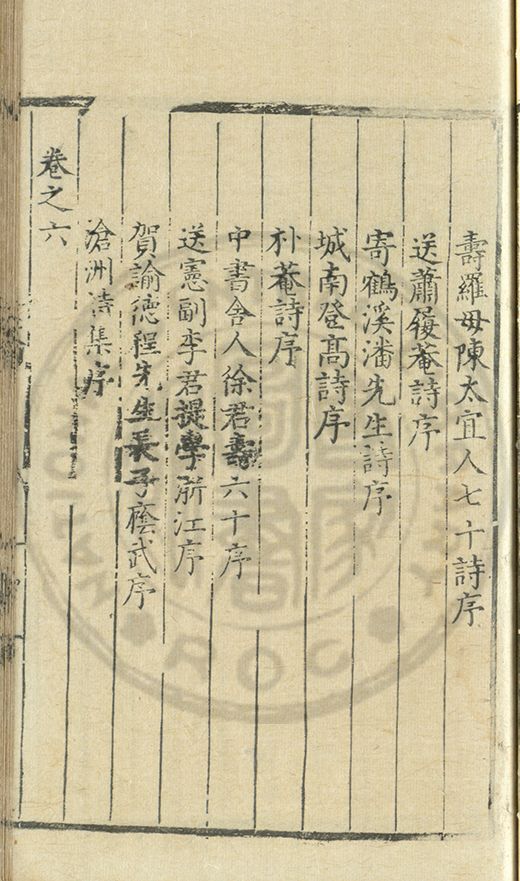 壽羅母陳太宜人七十詩序
送蕭履菴詩序
寄鶴溪潘先生詩序
城南登髙詩序
朴菴詩序
中書舍人徐君壽六十序
送憲副李君提學浙江序
賀諭徳程先生長子廕武序
滄洲詩集序
卷之六